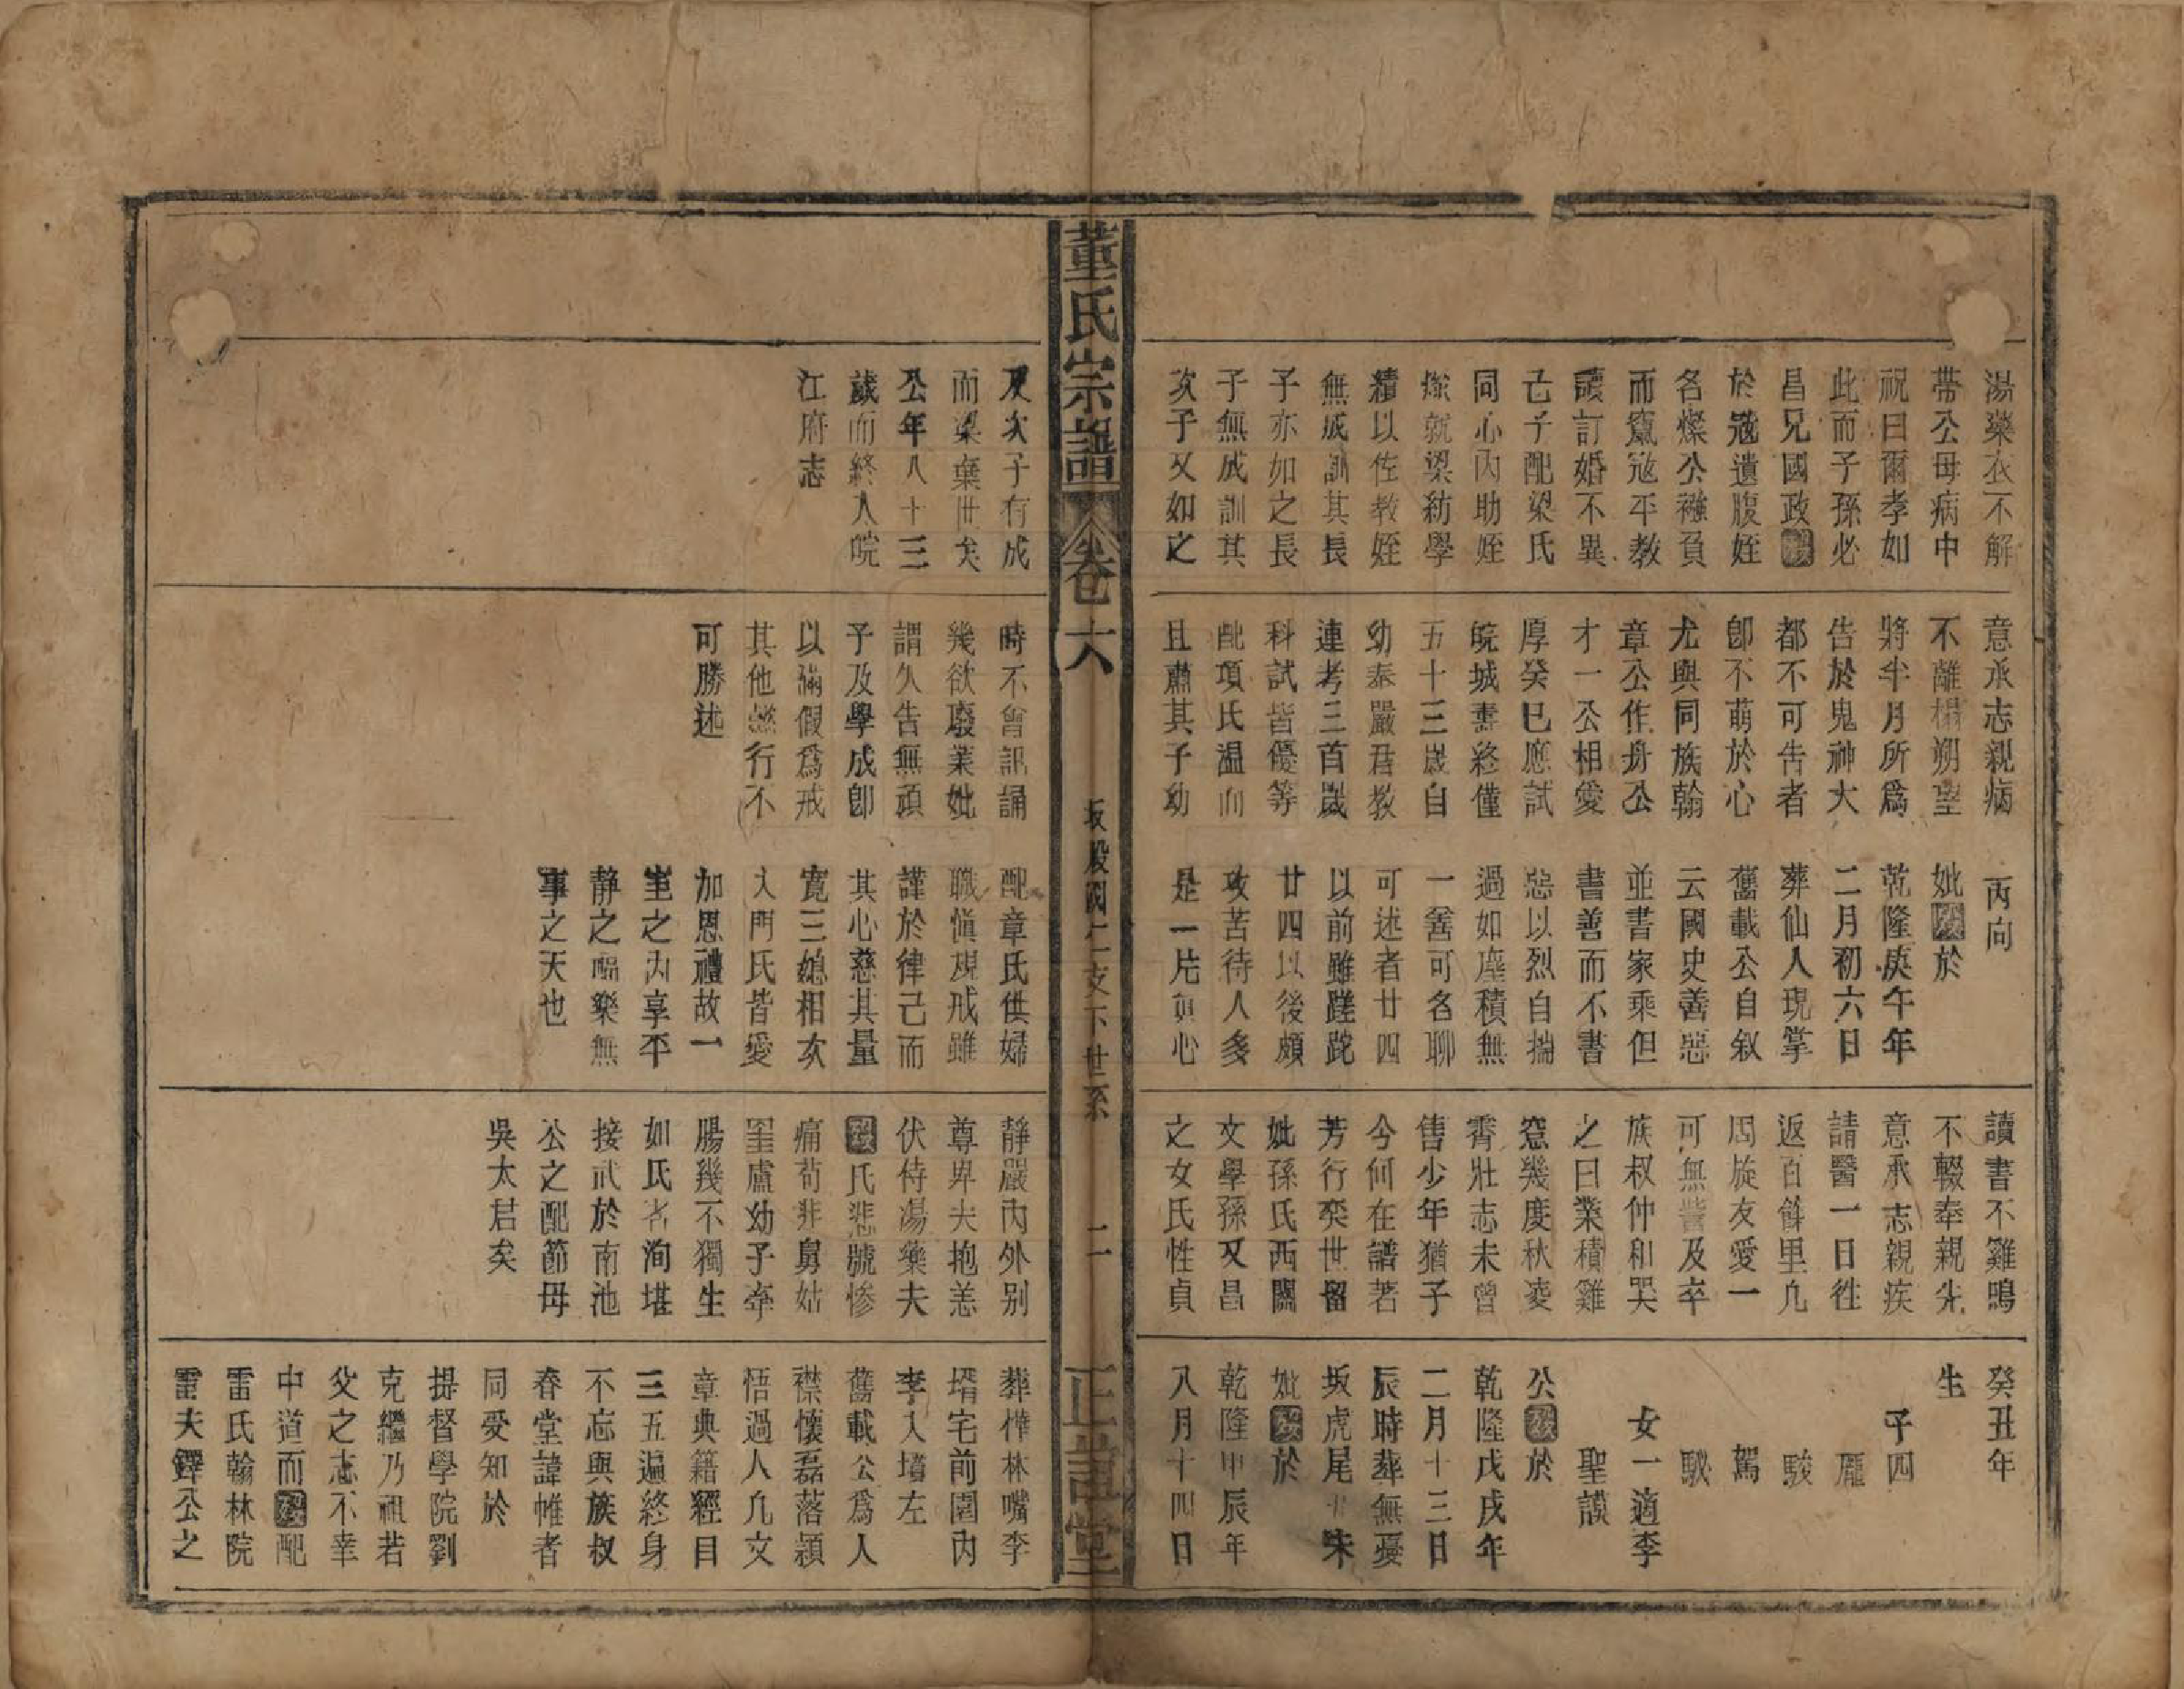 湯藥衣不解
帶公母病中
祝曰爾孝如
此而子孫必
昌兄國政歿
於寇遺腹姪
名燦公襁負
而竄寇平教
讀訂婚不異
己子配梁氏
同心內助姪
燦就梁紡學
積以佐教姪
無成訓其長
子亦如之長
子無成訓其
次子又如之
意承志親病
不離榻朔望
將半月所爲
告於鬼神大
都不可告者
卽不萌於心
尤與同族翰
章公作舟公
才一公相愛
厚癸巳應試
皖城壽終僅
五十三歲自
幼泰嚴君教
連考三首歲
科試皆優等
配項氏溫而
且肅其子幼
丙向
妣歿於
乾隆庚午年
二月初六日
葬仙人現掌
舊載公自敘
云國史善惡
並書家乘但
書善而不書
惡以烈自揣
過如塵積無
一善可名聊
可述者廿四
以前雖蹉跎
廿四以後頗
攻苦待人多
是一片真心
讀書不雞鳴
不輟奉親先
意承志親疾
請醫一日往
返百餘里凡
周旋友愛一
可無訾及卒
族叔仲和哭
之曰業積雞
窓幾度秋凌
霄壯志未曾
售少年猶子
今何在譜著
芳行奕世留
妣孫氏西關
文學孫又昌
之女氏性貞
癸丑年
生
子四
龎
駿
駕
駛
女一適李
聖謨
公歿於
乾隆戊戌年
二月十三日
辰時葬無憂
坂虎尾朱
妣歿於
乾隆甲辰年
八月十四日
董氏宗譜
卷六
坂股國仁支下世系
二
正誼堂
及次子有成
而梁棄世矣
公年八十三
歲而終入皖
江府志
時不會訊誦
幾欲廢業妣
謂久告無頑
予及學成卽
以滿假爲戒
其他懿行不
可勝述
配章氏供婦
職愼規戒雖
謹於律己而
其心慈其量
寬三媳相次
入門氏皆愛
加恩禮故一
室之內享平
靜之福樂無
事之天也
靜嚴內外別
尊卑夫抱恙
伏侍湯藥夫
歿氏悲號慘
痛苟非舅姑
堊廬幼子牽
腸幾不獨生
如氏者洵堪
接武於南池
公之配節母
吳太君矣
葬樺林嘴李
壻宅前園內
李人墳左
舊載公爲人
襟懷磊落穎
悟過人凡文
章典籍經目
三五遍終身
不忘與族叔
春堂諱帷者
同受知於
提督學院劉
克繼乃祖若
父之志不幸
中道而歿配
雷氏翰林院
雷夫鐸公之